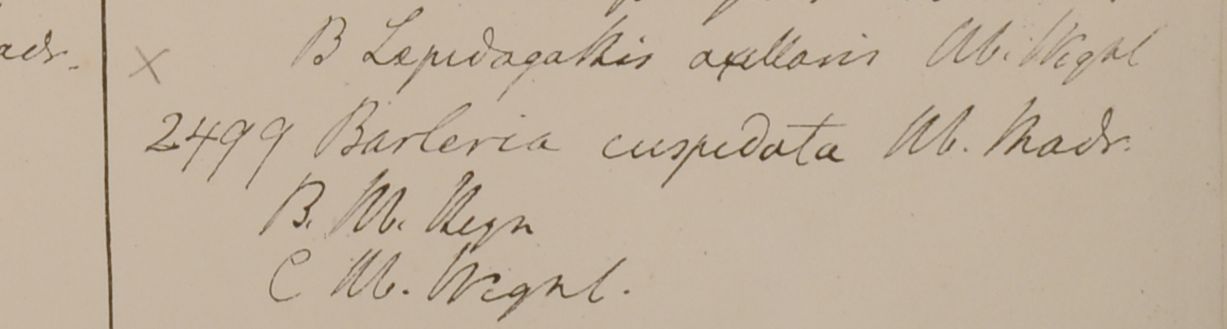 adr.
× B Lepidagathis axillaris Hb. Wight
2499 Barleria cuspidata Hb. Madr.
B. Hb. Heyn
C Hb. Wight.